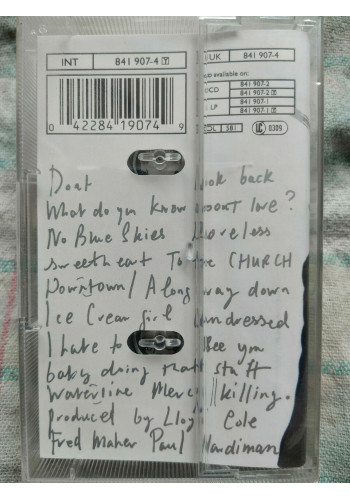 INT 841 907-4
UK 841 907-4
available on:
CD 841 907-2
841 907-2
LP 841 907-1
841 907-1
0 42284 19074 9
581 LC 0309
Dont look back
What do you know about love?
No Blue Skies loveless
sweetheart To the CHURCH
Downtown / A long way down
Ice Cream girl undressed
I hate to see you
baby doing that stuff
Waterline Mercy killing.
Produced by Lloyd Cole
Fred Maher Paul Hardiman